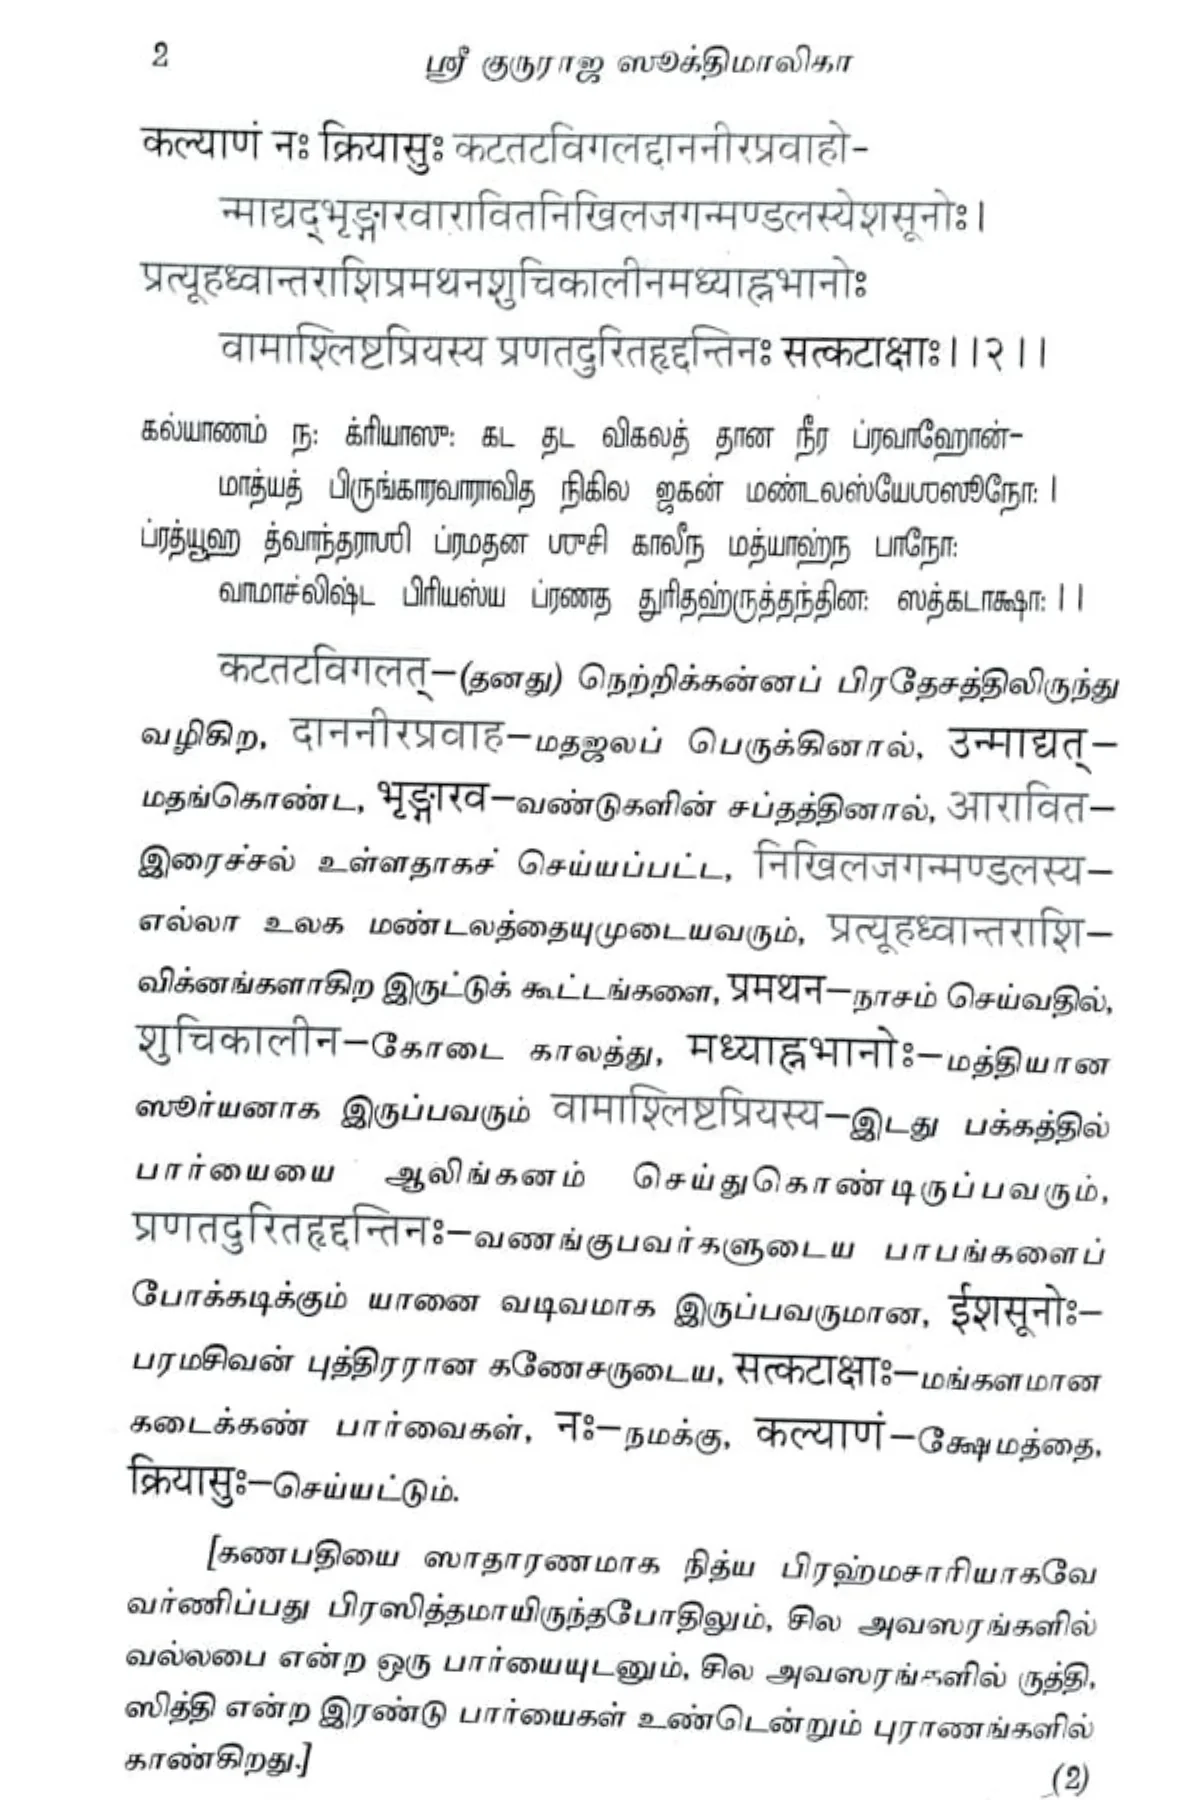 2 ஸ்ரீ குருராஜ ஸூக்திமாலிகா
कल्याणं नः क्रियासुः कटतटविगलद्दाननीरप्रवाहो-
न्माद्यद्भृङ्गारवारावितनिखिलजगन्मण्डलस्येशसूनोः।
प्रत्यूहध्वान्तराशिप्रमथनशुचिकालीनमध्याह्नभानोः
वामाश्लिष्टप्रियस्य प्रणतदुरितहृद्दन्तिनः सत्कटाक्षाः।।२।।
கல்யாணம் ந: க்ரியாஸு: கட தட விகலத் தான நீர ப்ரவாஹோன்-
மாத்யத் பிருங்காரவாராவித நிகில ஜகன் மண்டலஸ்யேஶஸூநோ: ।
ப்ரத்யூஹ த்வாந்தராஶி ப்ரமதன ஶுசி காலீந மத்யாஹ்ந பாநோ:
வாமாச்லிஷ்ட பிரியஸ்ய ப்ரணத துரிதஹ்ருத்தந்தின: ஸத்கடாக்ஷா: ।।
कटतटविगलत्–(தனது) நெற்றிக்கன்னப் பிரதேசத்திலிருந்து
வழிகிற, दाननीरप्रवाह–மதஜலப் பெருக்கினால், उन्माद्यत्–
மதங்கொண்ட, भृङ्गारव–வண்டுகளின் சப்தத்தினால், आरावित–
இரைச்சல் உள்ளதாகச் செய்யப்பட்ட, निखिलजगन्मण्डलस्य–
எல்லா உலக மண்டலத்தையுமுடையவரும், प्रत्यूहध्वान्तराशि–
விக்னங்களாகிற இருட்டுக் கூட்டங்களை, प्रमथन–நாசம் செய்வதில்,
शुचिकालीन–கோடை காலத்து, मध्याह्नभानोः–மத்தியான
ஸூர்யனாக இருப்பவரும் वामाश्लिष्टप्रियस्य–இடது பக்கத்தில்
பார்யையை ஆலிங்கனம் செய்துகொண்டிருப்பவரும்,
प्रणतदुरितहृद्दन्तिनः–வணங்குபவர்களுடைய பாபங்களைப்
போக்கடிக்கும் யானை வடிவமாக இருப்பவருமான, ईशसूनोः–
பரமசிவன் புத்திரரான கணேசருடைய, सत्कटाक्षाः–மங்களமான
கடைக்கண் பார்வைகள், नः–நமக்கு, कल्याणं–க்ஷேமத்தை,
क्रियासुः–செய்யட்டும்.
[கணபதியை ஸாதாரணமாக நித்ய பிரஹ்மசாரியாகவே
வர்ணிப்பது பிரஸித்தமாயிருந்தபோதிலும், சில அவஸரங்களில்
வல்லபை என்ற ஒரு பார்யையுடனும், சில அவஸரங்களில் ருத்தி,
ஸித்தி என்ற இரண்டு பார்யைகள் உண்டென்றும் புராணங்களில்
காண்கிறது.] (2)